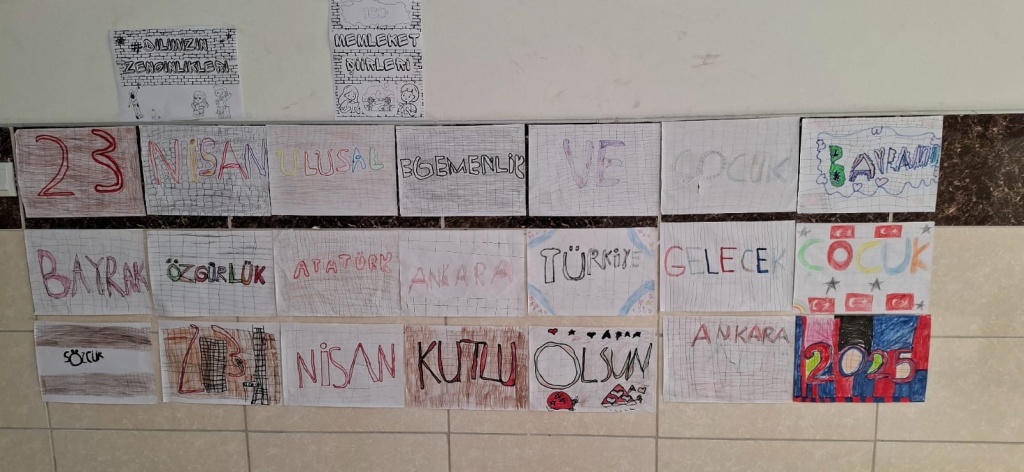 #DİLİMİZİN
ZENGİNLİKLERİ
MEMLEKET
ŞİİRLERİ
23 NİSAN ULUSAL EGEMENLİK VE ÇOCUK BAYRAMI
BAYRAK ÖZGÜRLÜK ATATÜRK ANKARA TÜRKİYE GELECEK ÇOCUK
SÖZCÜK 23 NİSAN KUTLU OLSUN ANKARA 2025